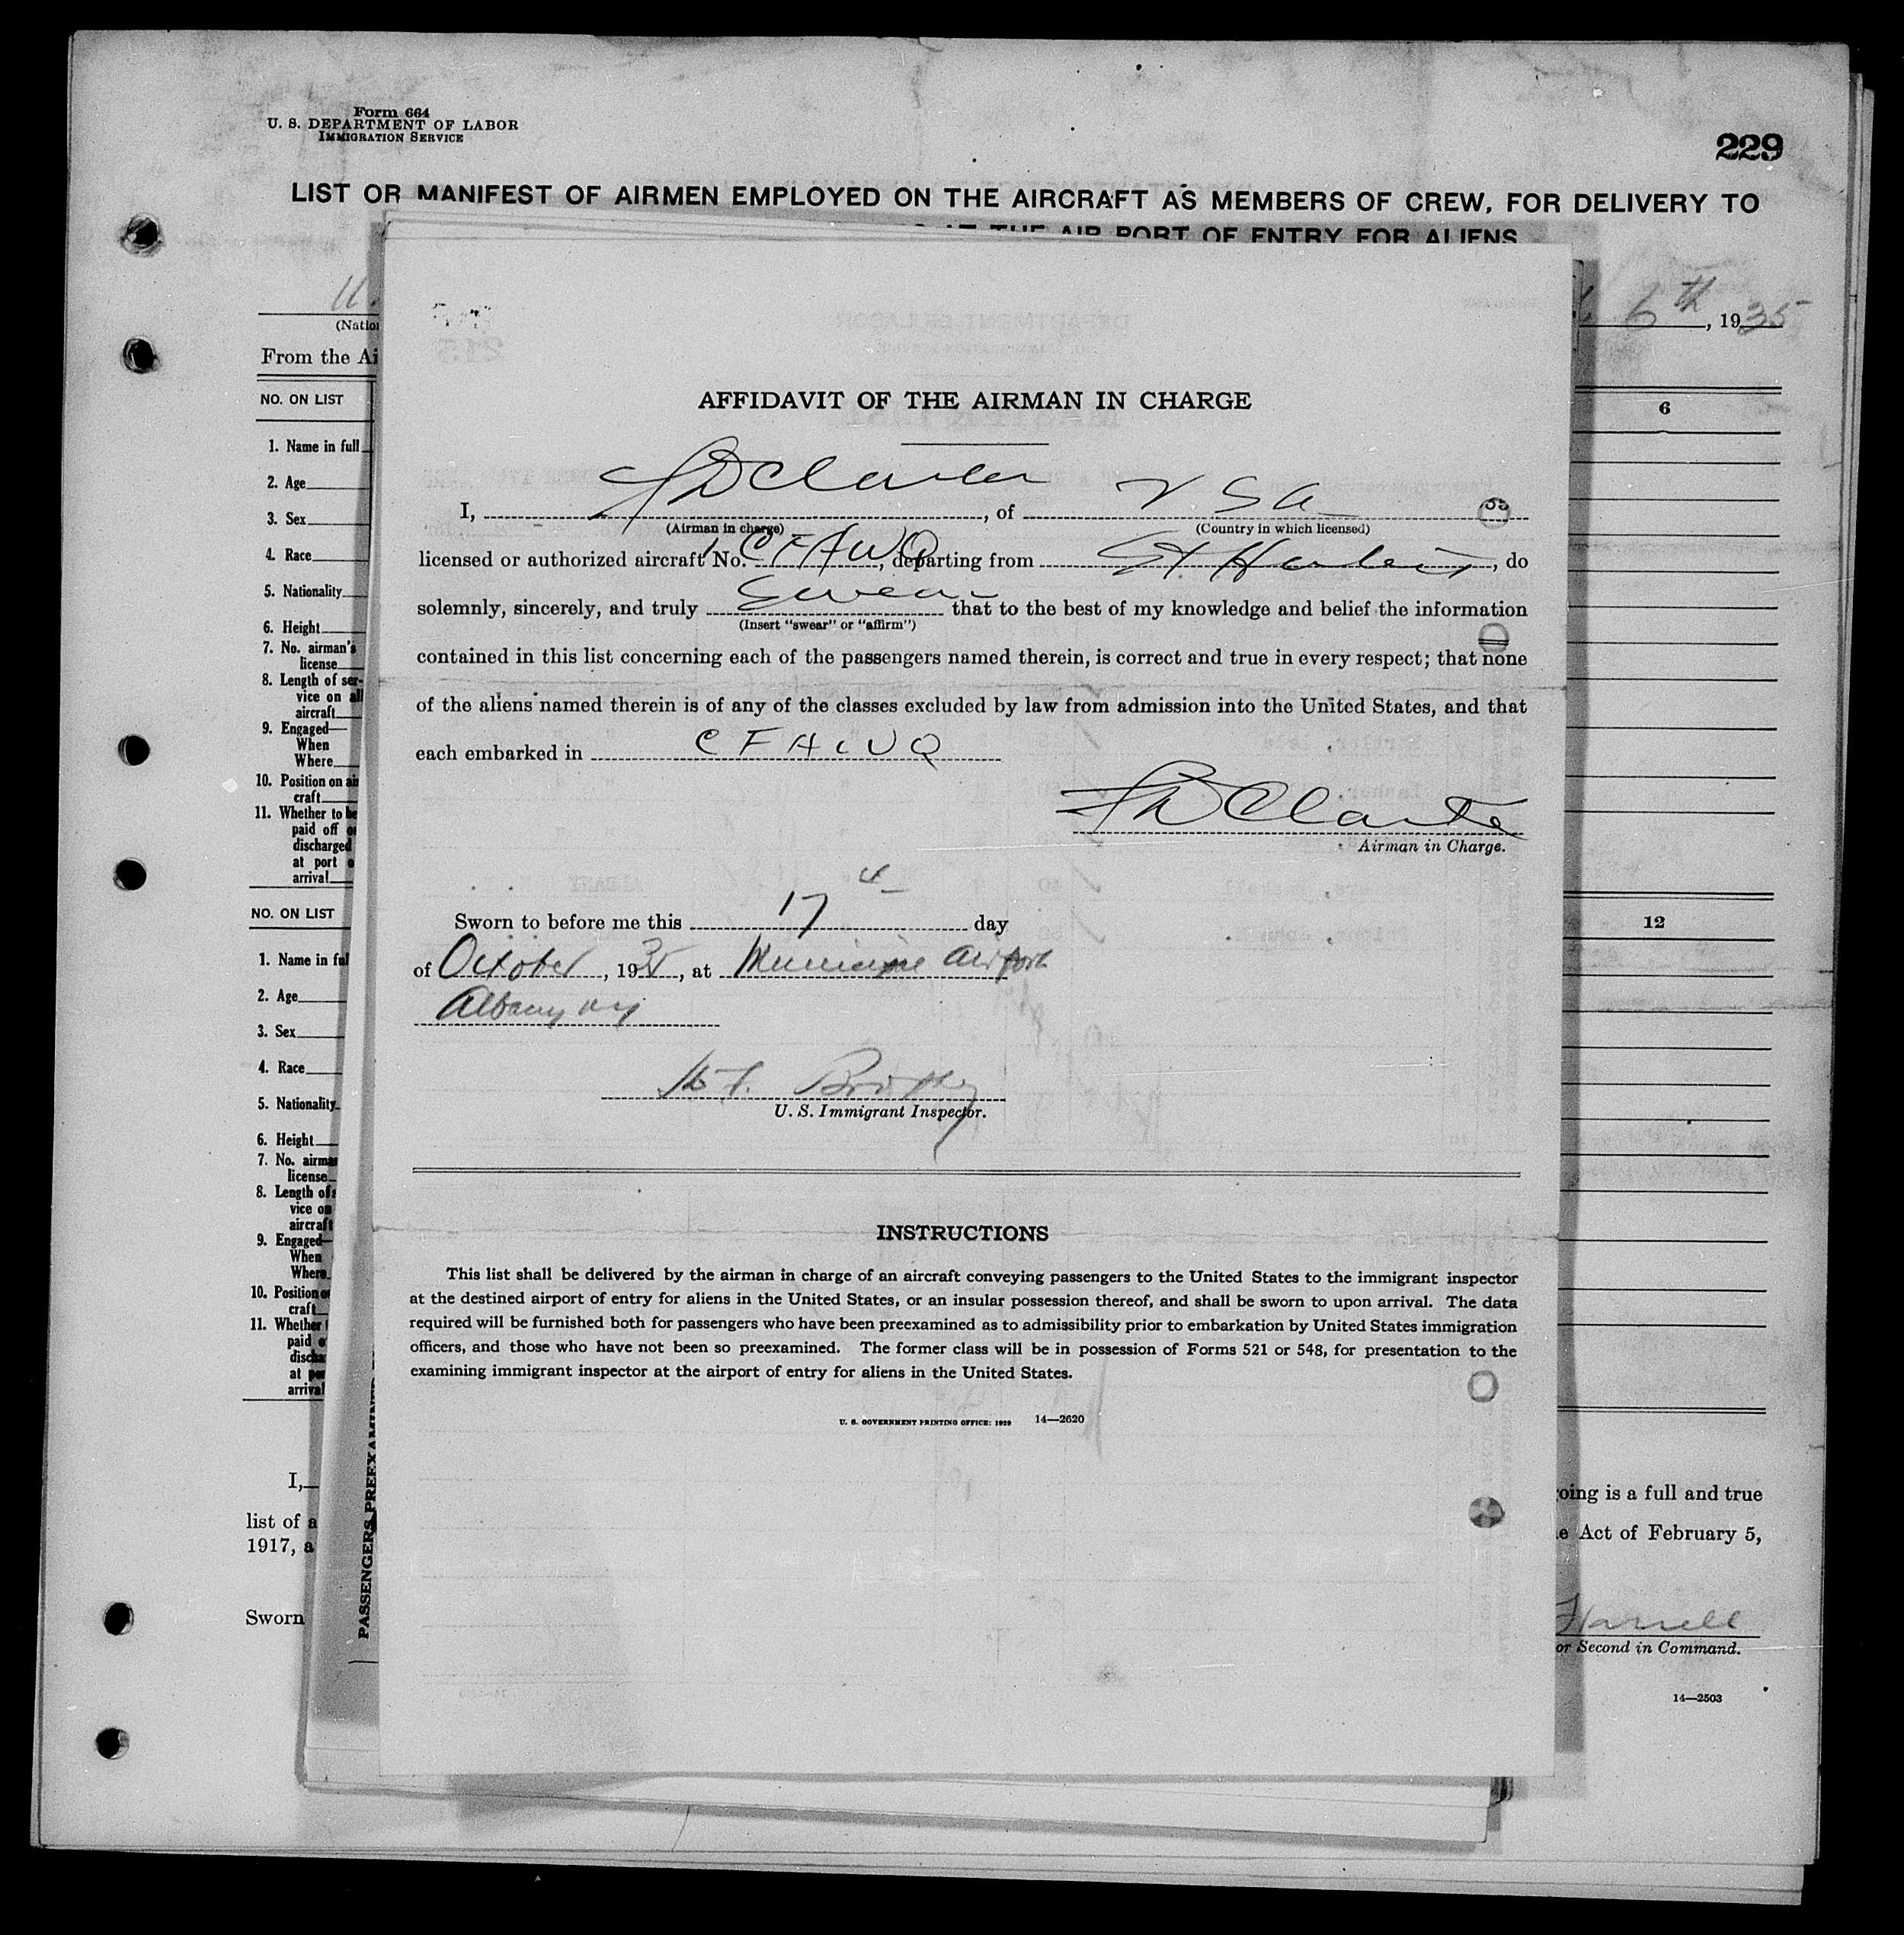 Form 664
U. S. DEPARTMENT OF LABOR
IMMIGRATION SERVICE
229
LIST OR MANIFEST OF AIRMEN EMPLOYED ON THE AIRCRAFT AS MEMBERS OF CREW, FOR DELIVERY TO
AT THE AIR PORT OF ENTRY FOR ALIENS
U.
6th, 1935
(Natio
From the Ai
NO. ON LIST
6
1. Name in full
2. Age
3. Sex
4. Race
5. Nationality
6. Height
7. No. airman's
license
8. Length of ser-
vice on all
aircraft
9. Engaged—
When
Where
10. Position on air
craft
11. Whether to be
paid off or
discharged
at port o
arrival
NO. ON LIST
12
1. Name in ful
2. Age
3. Sex
4. Race
5. Nationality
6. Height
7. No. airman
license
8. Length of s
vice on
aircraft
9. Engaged—
When
Where
10. Position o
craft
11. Whether t
paid o
discha
at por
arrival
I,
going is a full and true
list of a
e Act of February 5,
1917, a
Sworn
Harrell
or Second in Command.
14—2503
PASSENGERS PREEXAMINED
AFFIDAVIT OF THE AIRMAN IN CHARGE
I, Clarke, of USA
(Airman in charge) (Country in which licensed)
licensed or authorized aircraft No. CFAWQ, departing from St Hubert, do
solemnly, sincerely, and truly Swear that to the best of my knowledge and belief the information
(Insert "swear" or "affirm")
contained in this list concerning each of the passengers named therein, is correct and true in every respect; that none
of the aliens named therein is of any of the classes excluded by law from admission into the United States, and that
each embarked in CFAWQ
Clarke
Airman in Charge.
Sworn to before me this 17th day
of October, 1935, at Municipal Airport
Albany NY
U. S. Immigrant Inspector.
INSTRUCTIONS
This list shall be delivered by the airman in charge of an aircraft conveying passengers to the United States to the immigrant inspector
at the destined airport of entry for aliens in the United States, or an insular possession thereof, and shall be sworn to upon arrival. The data
required will be furnished both for passengers who have been preexamined as to admissibility prior to embarkation by United States immigration
officers, and those who have not been so preexamined. The former class will be in possession of Forms 521 or 548, for presentation to the
examining immigrant inspector at the airport of entry for aliens in the United States.
U. S. GOVERNMENT PRINTING OFFICE: 1929 14—2620